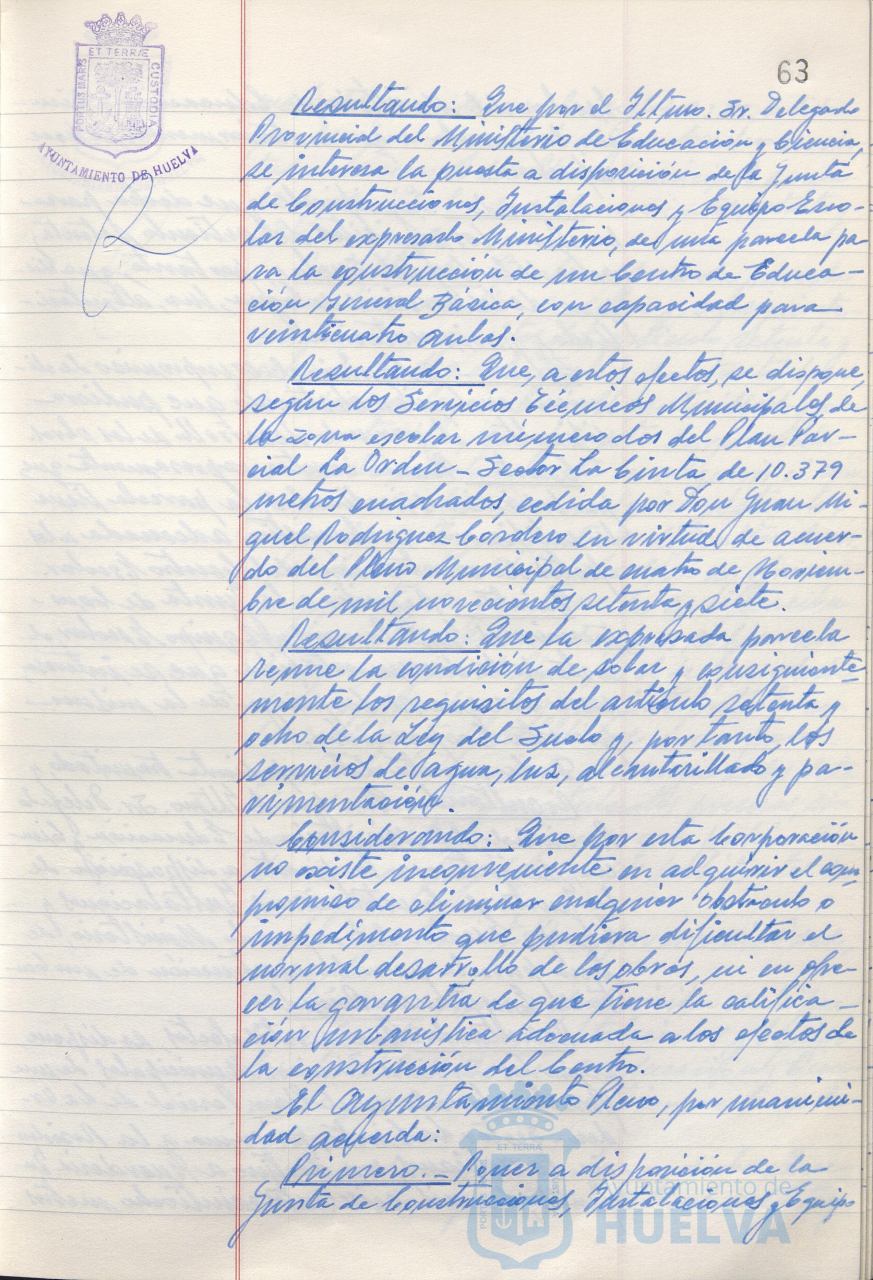 63
PORTUS MARIS ET TERRÆ CUSTODIA
AYUNTAMIENTO DE HUELVA
Resultando: Que por el Iltmo. Sr. Delegado
Provincial del Ministerio de Educación y Ciencia,
se interesa la puesta a disposición de la Junta
de Construcciones, Instalaciones y Equipo Esco-
lar del expresado Ministerio, de una parcela pa-
ra la construcción de un Centro de Educa-
ción General Básica, con capacidad para
veinticuatro aulas.
Resultando: Que, a estos efectos, se dispone,
según los Servicios Técnicos Municipales de
la zona escolar número dos del Plan Par-
cial La Orden - Sector La Cinta, de 10.379
metros cuadrados, cedida por Don Juan Mi-
guel Rodriguez Cordero en virtud de acuer-
do del Pleno Municipal de cuatro de Noviem-
bre de mil novecientos setenta y siete.
Resultando: Que la expresada parcela
reune la condición de solar y consiguiente-
mente los requisitos del artículo setenta y
ocho de la Ley del Suelo y, por tanto, los
servicios de agua, luz, alcantarillado y pa-
vimentación.
Considerando: Que por esta Corporación
no existe inconveniente en adquirir el com-
promiso de eliminar cualquier obstáculo o
impedimento que pudiera dificultar el
normal desarrollo de las obras, ni en ofre-
cer la garantía de que tiene la califica-
ción urbanística adecuada a los efectos de
la construcción del Centro.
El Ayuntamiento Pleno, por unanimi-
dad acuerda:
Primero.- Poner a disposición de la
Junta de Construcciones, Instalaciones y Equipo
Ayuntamiento de
HUELVA